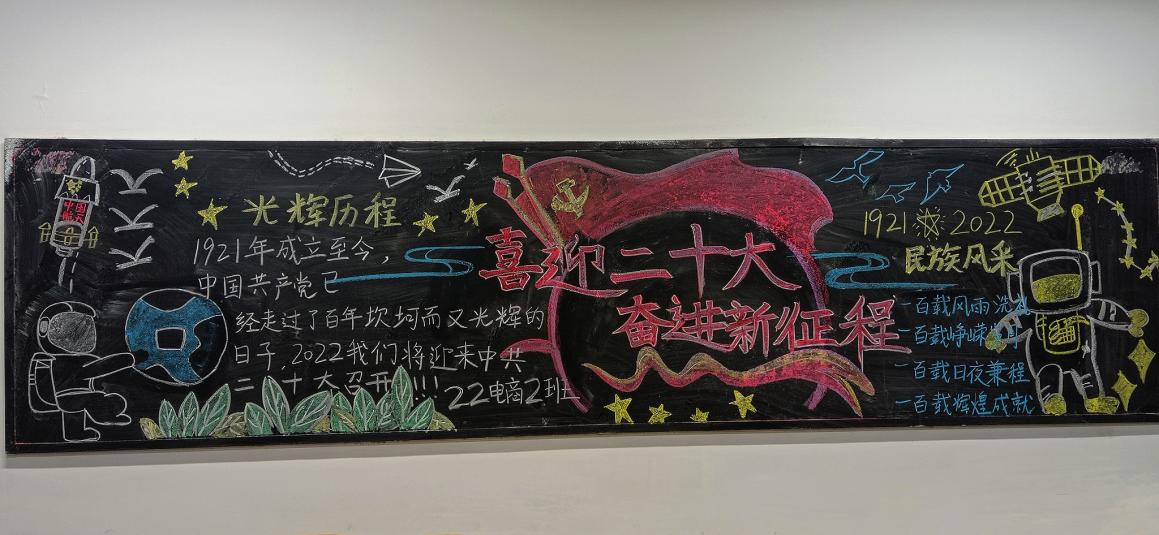 中国
光辉历程
1921年成立至今,
中国共产党已
经走过了百年坎坷而又光辉的
日子,2022我们将迎来中共
二十大召开!!!
22电商2班
喜迎二十大
奋进新征程
1921 2022
民族风采
一百载风雨洗礼
一百载峥嵘岁月
一百载日夜兼程
一百载辉煌成就